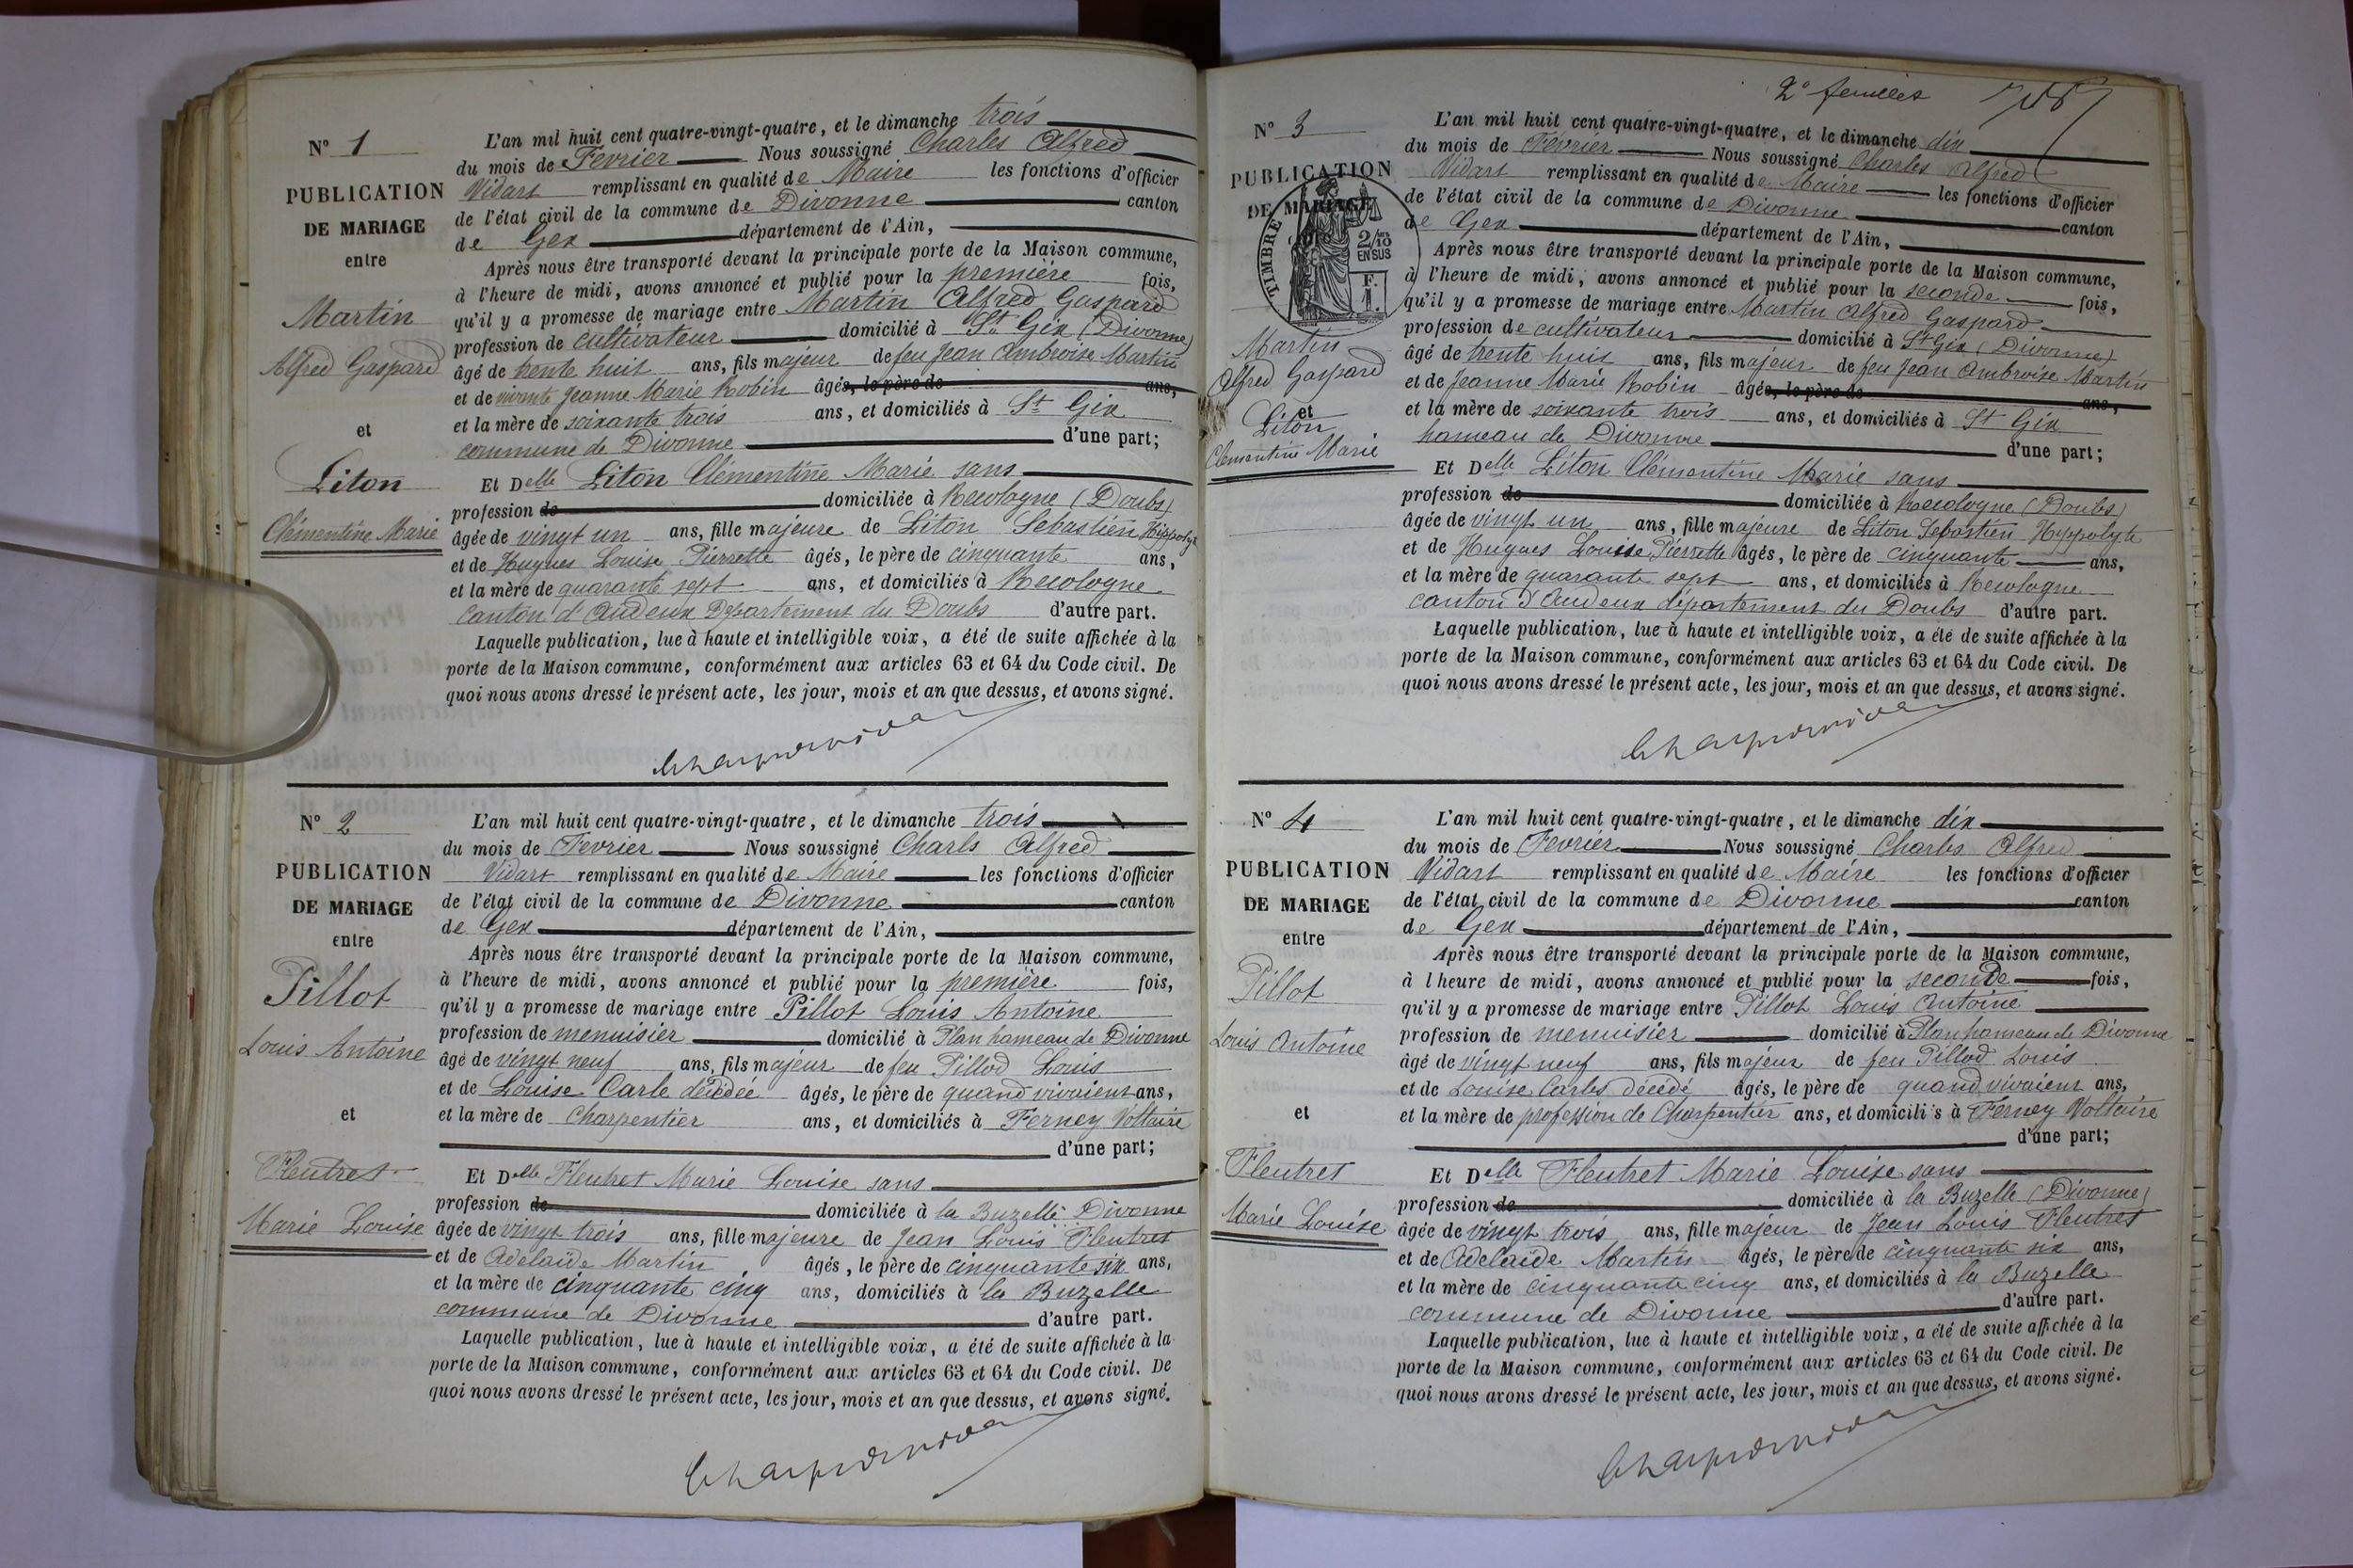 N° 1
PUBLICATION
DE MARIAGE
entre
Martin
Alfred Gaspard
et
Liton
Clémentine Marie
L'an mil huit cent quatre-vingt-quatre, et le dimanche trois
du mois de Fevrier Nous soussigné Charles Alfred
Vidart remplissant en qualité de Maire les fonctions d'officier
de l'état civil de la commune de Divonne canton
de Gex département de l'Ain,
Après nous être transporté devant la principale porte de la Maison commune,
à l'heure de midi, avons annoncé et publié pour la première fois,
qu'il y a promesse de mariage entre Martin Alfred Gaspard
profession de cultivateur domicilié à St Gix (Divonne)
âgé de trente huit ans, fils majeur de feu Jean Ambroise Martin
et de vivante Jeanne Marie Robin âgés, le père de ans,
et la mère de soixante trois ans, et domiciliés à St Gix
commune de Divonne d'une part;
Et Delle Liton Clémentine Marie sans
profession de domiciliée à Recologne (Doubs)
âgée de vingt un ans, fille majeure de Liton Sebastien Hippolyte
et de Hugues Louise Pierrette âgés, le père de cinquante ans,
et la mère de quarante sept ans, et domiciliés à Recologne
canton d'Audeux Departement du Doubs d'autre part.
Laquelle publication, lue à haute et intelligible voix, a été de suite affichée à la
porte de la Maison commune, conformément aux articles 63 et 64 du Code civil. De
quoi nous avons dressé le présent acte, les jour, mois et an que dessus, et avons signé.
N° 2
PUBLICATION
DE MARIAGE
entre
Pillot
Louis Antoine
et
Fleutret
Marie Louise
L'an mil huit cent quatre-vingt-quatre, et le dimanche trois
du mois de Fevrier Nous soussigné Charls Alfred
Vidart remplissant en qualité de Maire les fonctions d'officier
de l'état civil de la commune de Divonne canton
de Gex département de l'Ain,
Après nous être transporté devant la principale porte de la Maison commune,
à l'heure de midi, avons annoncé et publié pour la première fois,
qu'il y a promesse de mariage entre Pillot Louis Antoine
profession de menuisier domicilié à Plan hameau de Divonne
âgé de vingt neuf ans, fils majeur de feu Pillod Louis
et de Louise Carle décédée âgés, le père de quand vivaient ans,
et la mère de Charpentier ans, et domiciliés à Ferney Voltaire
d'une part;
Et Delle Fleutret Marie Louise sans
profession de domiciliée à la Buzelle Divonne
âgée de vingt trois ans, fille majeure de Jean Louis Fleutret
et de Adelaïde Martin âgés, le père de cinquante six ans,
et la mère de cinquante cinq ans, domiciliés à la Buzelle
commune de Divonne d'autre part.
Laquelle publication, lue à haute et intelligible voix, a été de suite affichée à la
porte de la Maison commune, conformément aux articles 63 et 64 du Code civil. De
quoi nous avons dressé le présent acte, les jour, mois et an que dessus, et avons signé.
2e feuillet
N° 3
PUBLICATION
DE MARIAGE
TIMBRE
2/10
EN SUS
F.
1.
Martin
Alfred Gaspard
et
Liton
Clementine Marie
L'an mil huit cent quatre-vingt-quatre, et le dimanche dix
du mois de Février Nous soussigné Charles Alfred
Vidart remplissant en qualité de Maire les fonctions d'officier
de l'état civil de la commune de Divonne canton
de Gex département de l'Ain,
Après nous être transporté devant la principale porte de la Maison commune,
à l'heure de midi, avons annoncé et publié pour la seconde fois,
qu'il y a promesse de mariage entre Martin Alfred Gaspard
profession de cultivateur domicilié à St Gix (Divonne)
âgé de trente huit ans, fils majeur de feu Jean Ambroise Martin
et de Jeanne Marie Robin âgés, le père de ans,
et la mère de soixante trois ans, et domiciliés à St Gix
hameau de Divonne d'une part;
Et Delle Liton Clémentine Marie sans
profession de domiciliée à Recologne (Doubs)
âgée de vingt un ans, fille majeure de Liton Sebastien Hyppolyte
et de Hugues Louise Pierrette âgés, le père de cinquante ans,
et la mère de quarante sept ans, et domiciliés à Recologne
canton d'Audeux département du Doubs d'autre part.
Laquelle publication, lue à haute et intelligible voix, a été de suite affichée à la
porte de la Maison commune, conformément aux articles 63 et 64 du Code civil. De
quoi nous avons dressé le présent acte, les jour, mois et an que dessus, et avons signé.
N° 4
PUBLICATION
DE MARIAGE
entre
Pillot
Louis Antoine
et
Fleutret
Marie Louise
L'an mil huit cent quatre-vingt-quatre, et le dimanche dix
du mois de Fevrier Nous soussigné Charles Alfred
Vidart remplissant en qualité de Maire les fonctions d'officier
de l'état civil de la commune de Divonne canton
de Gex département de l'Ain,
Après nous être transporté devant la principale porte de la Maison commune,
à l'heure de midi, avons annoncé et publié pour la seconde fois,
qu'il y a promesse de mariage entre Pillot Louis Antoine
profession de menuisier domicilié à Plan hameau de Divonne
âgé de vingt neuf ans, fils majeur de feu Pillod Louis
et de Louise Carles décédé âgés, le père de quand vivaient ans,
et la mère de profession de Charpentier ans, et domiciliés à Ferney Voltaire
d'une part;
Et Delle Fleutret Marie Louise sans
profession de domiciliée à la Buzelle (Divonne)
âgée de vingt trois ans, fille majeur de Jean Louis Fleutret
et de Adelaïde Martin âgés, le père de cinquante six ans,
et la mère de cinquante cinq ans, et domiciliés à la Buzelle
commune de Divonne d'autre part.
Laquelle publication, lue à haute et intelligible voix, a été de suite affichée à la
porte de la Maison commune, conformément aux articles 63 et 64 du Code civil. De
quoi nous avons dressé le présent acte, les jour, mois et an que dessus, et avons signé.